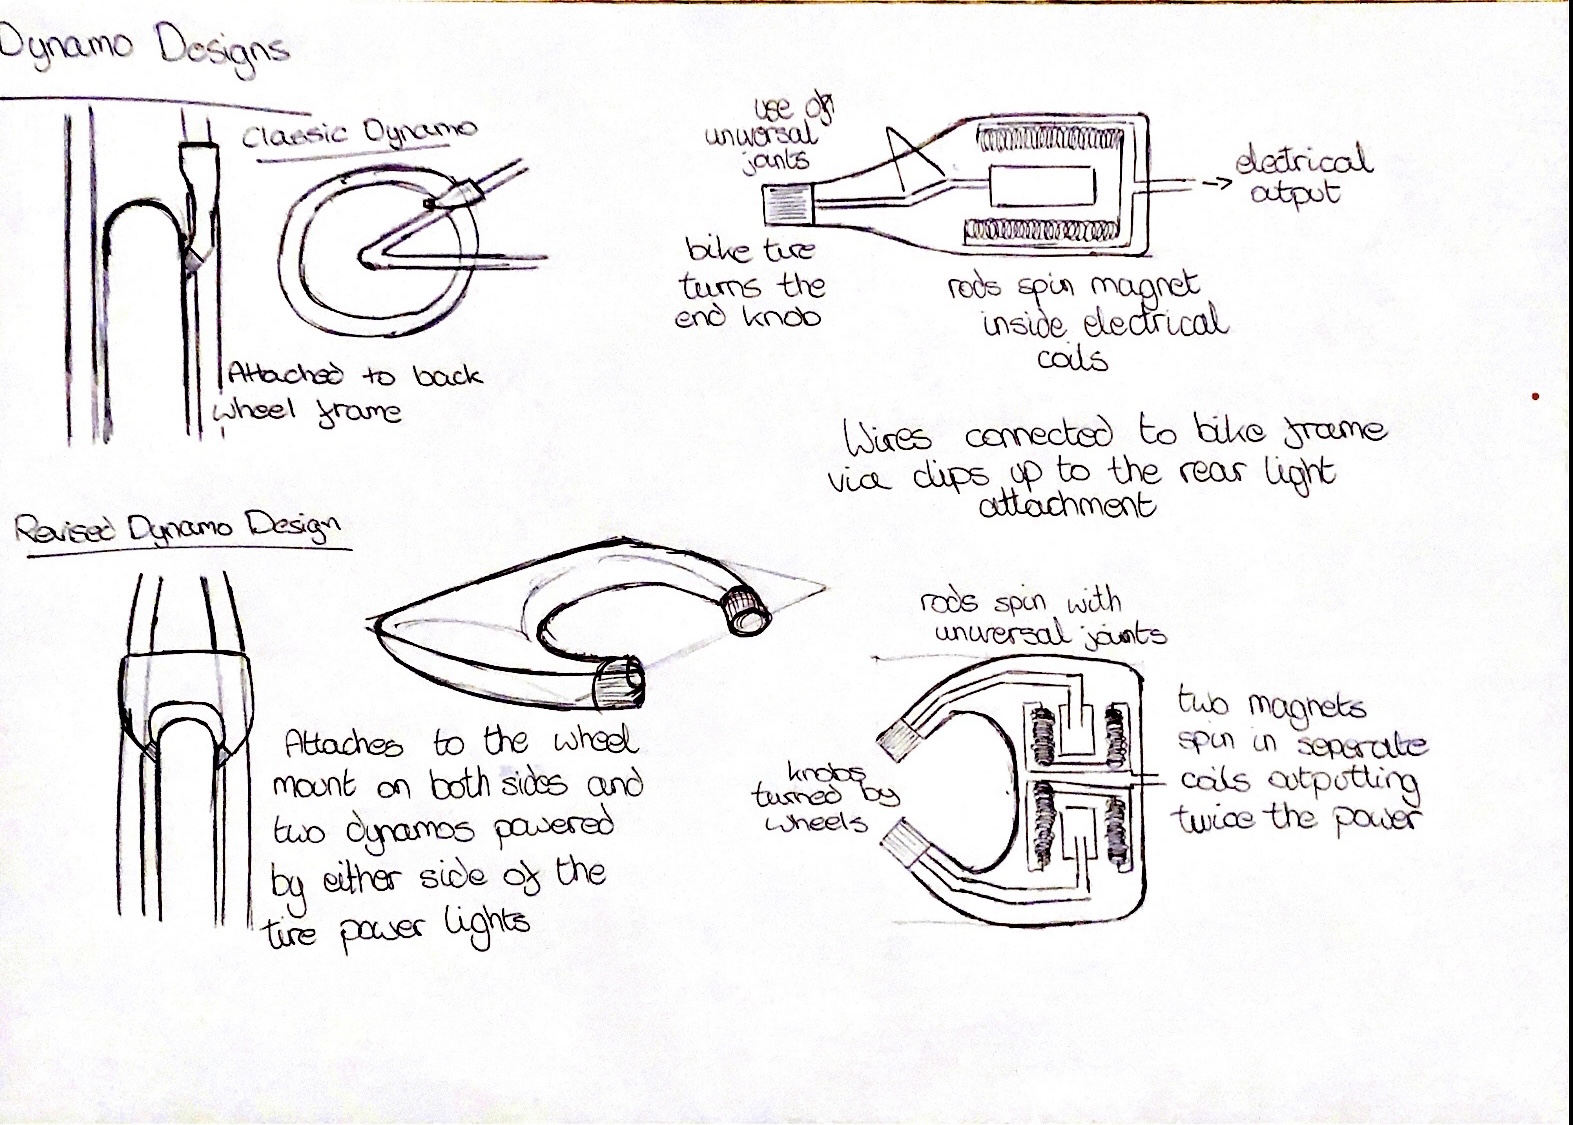 Dynamo Designs
Classic Dynamo
Attached to back
wheel frame
use of
universal
joints
bike tire
turns the
end knob
rods spin magnet
inside electrical
coils
electrical
output
Wires connected to bike frame
via clips up to the rear light
attachment
Revised Dynamo Design
Attaches to the wheel
mount on both sides and
two dynamos powered
by either side of the
tire power lights
rods spin with
universal joints
knobs
turned by
wheels
two magnets
spin in seperate
coils outputting
twice the power